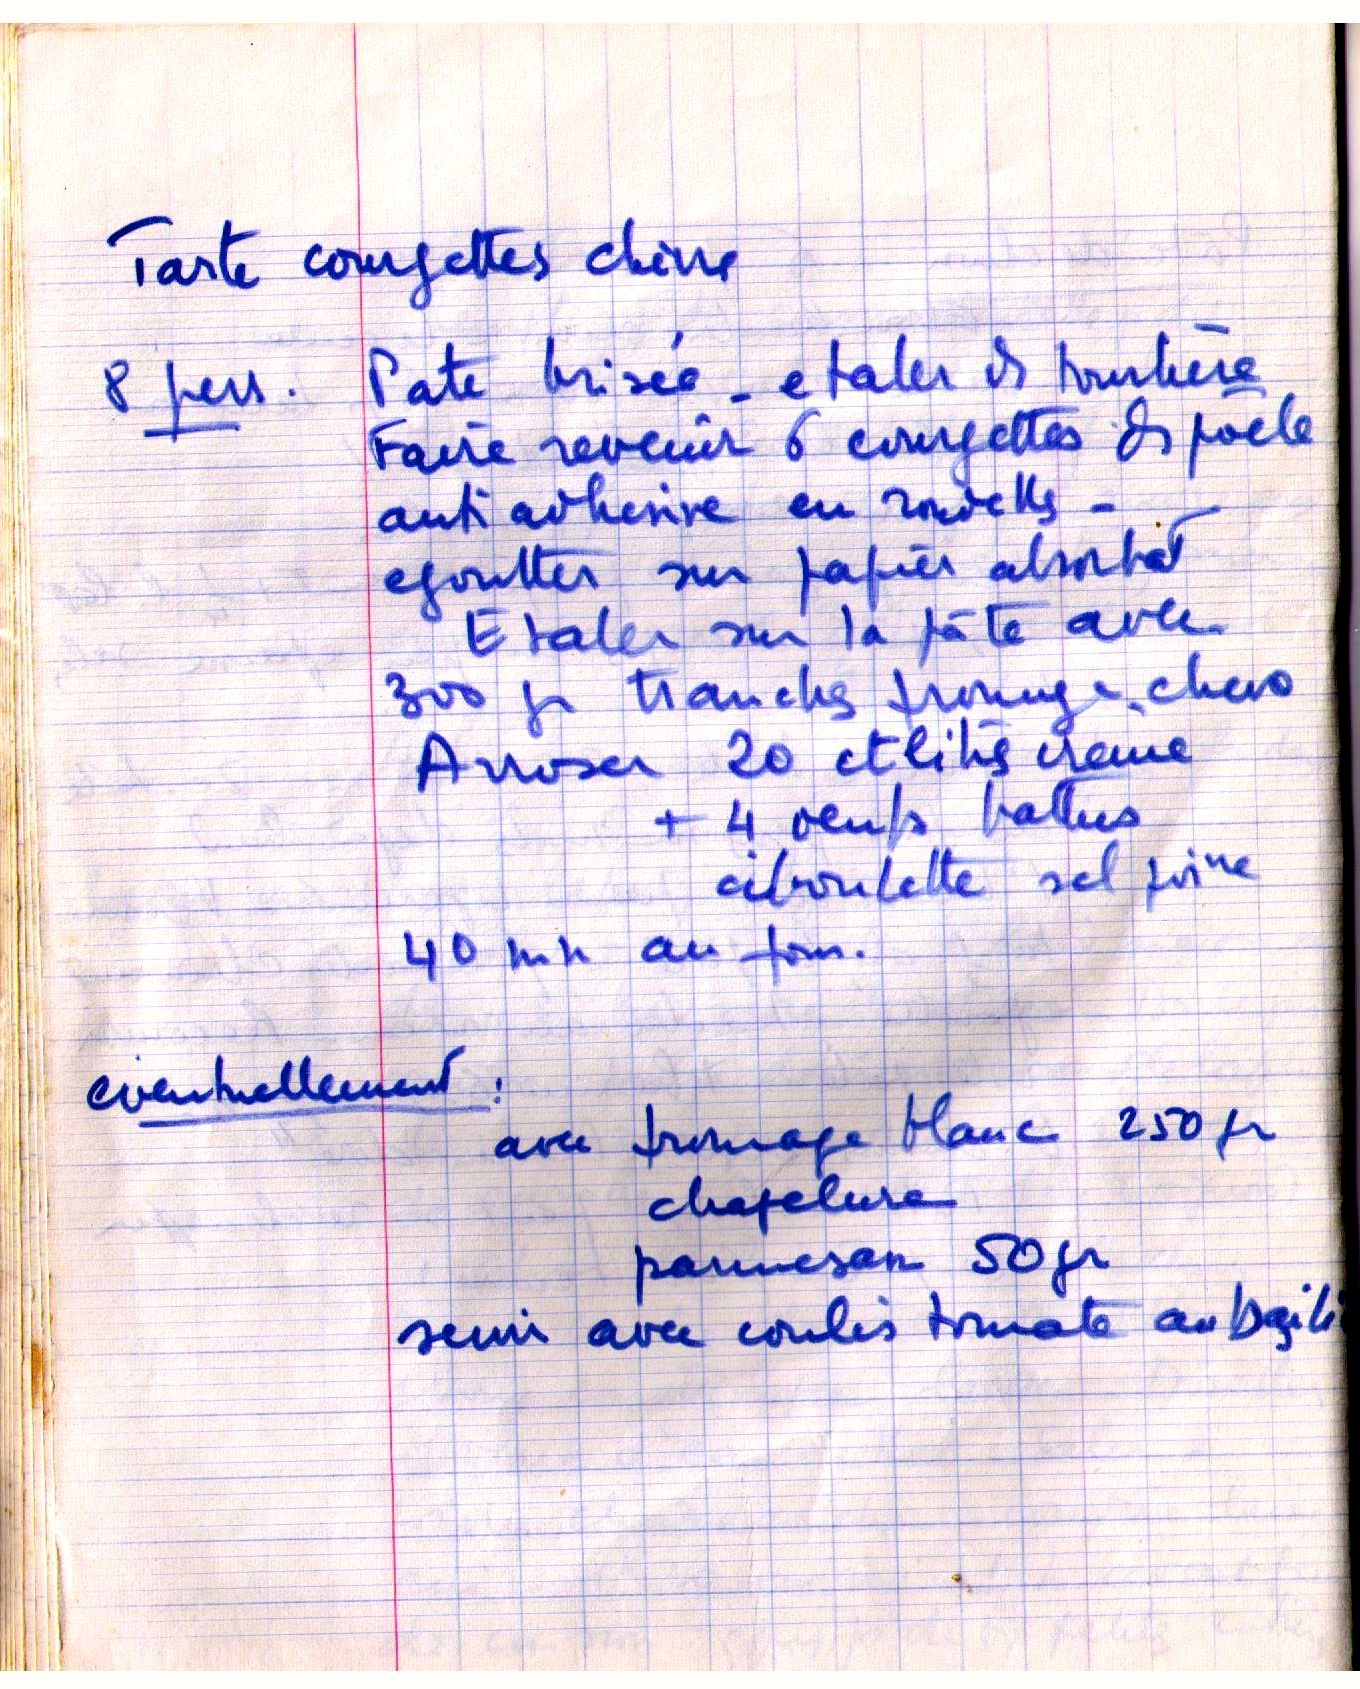 Tarte courgettes chèvre
8 pers. Pate brisée - etaler ds tourtière
Faire revenir 6 courgettes ds poêle
anti adhesive en rondelles -
egoutter sur papier absorbat
Etaler sur la pâte avec
300 gr tranches fromage chevo
Arroser 20 ctlitrs crème
+ 4 oeufs battus
ciboulette sel poivre
40 mn au four.
eventuellement :
avec fromage blanc 250 gr
chapelure
parmesan 50 gr
servir avec coulis tomate au basilic